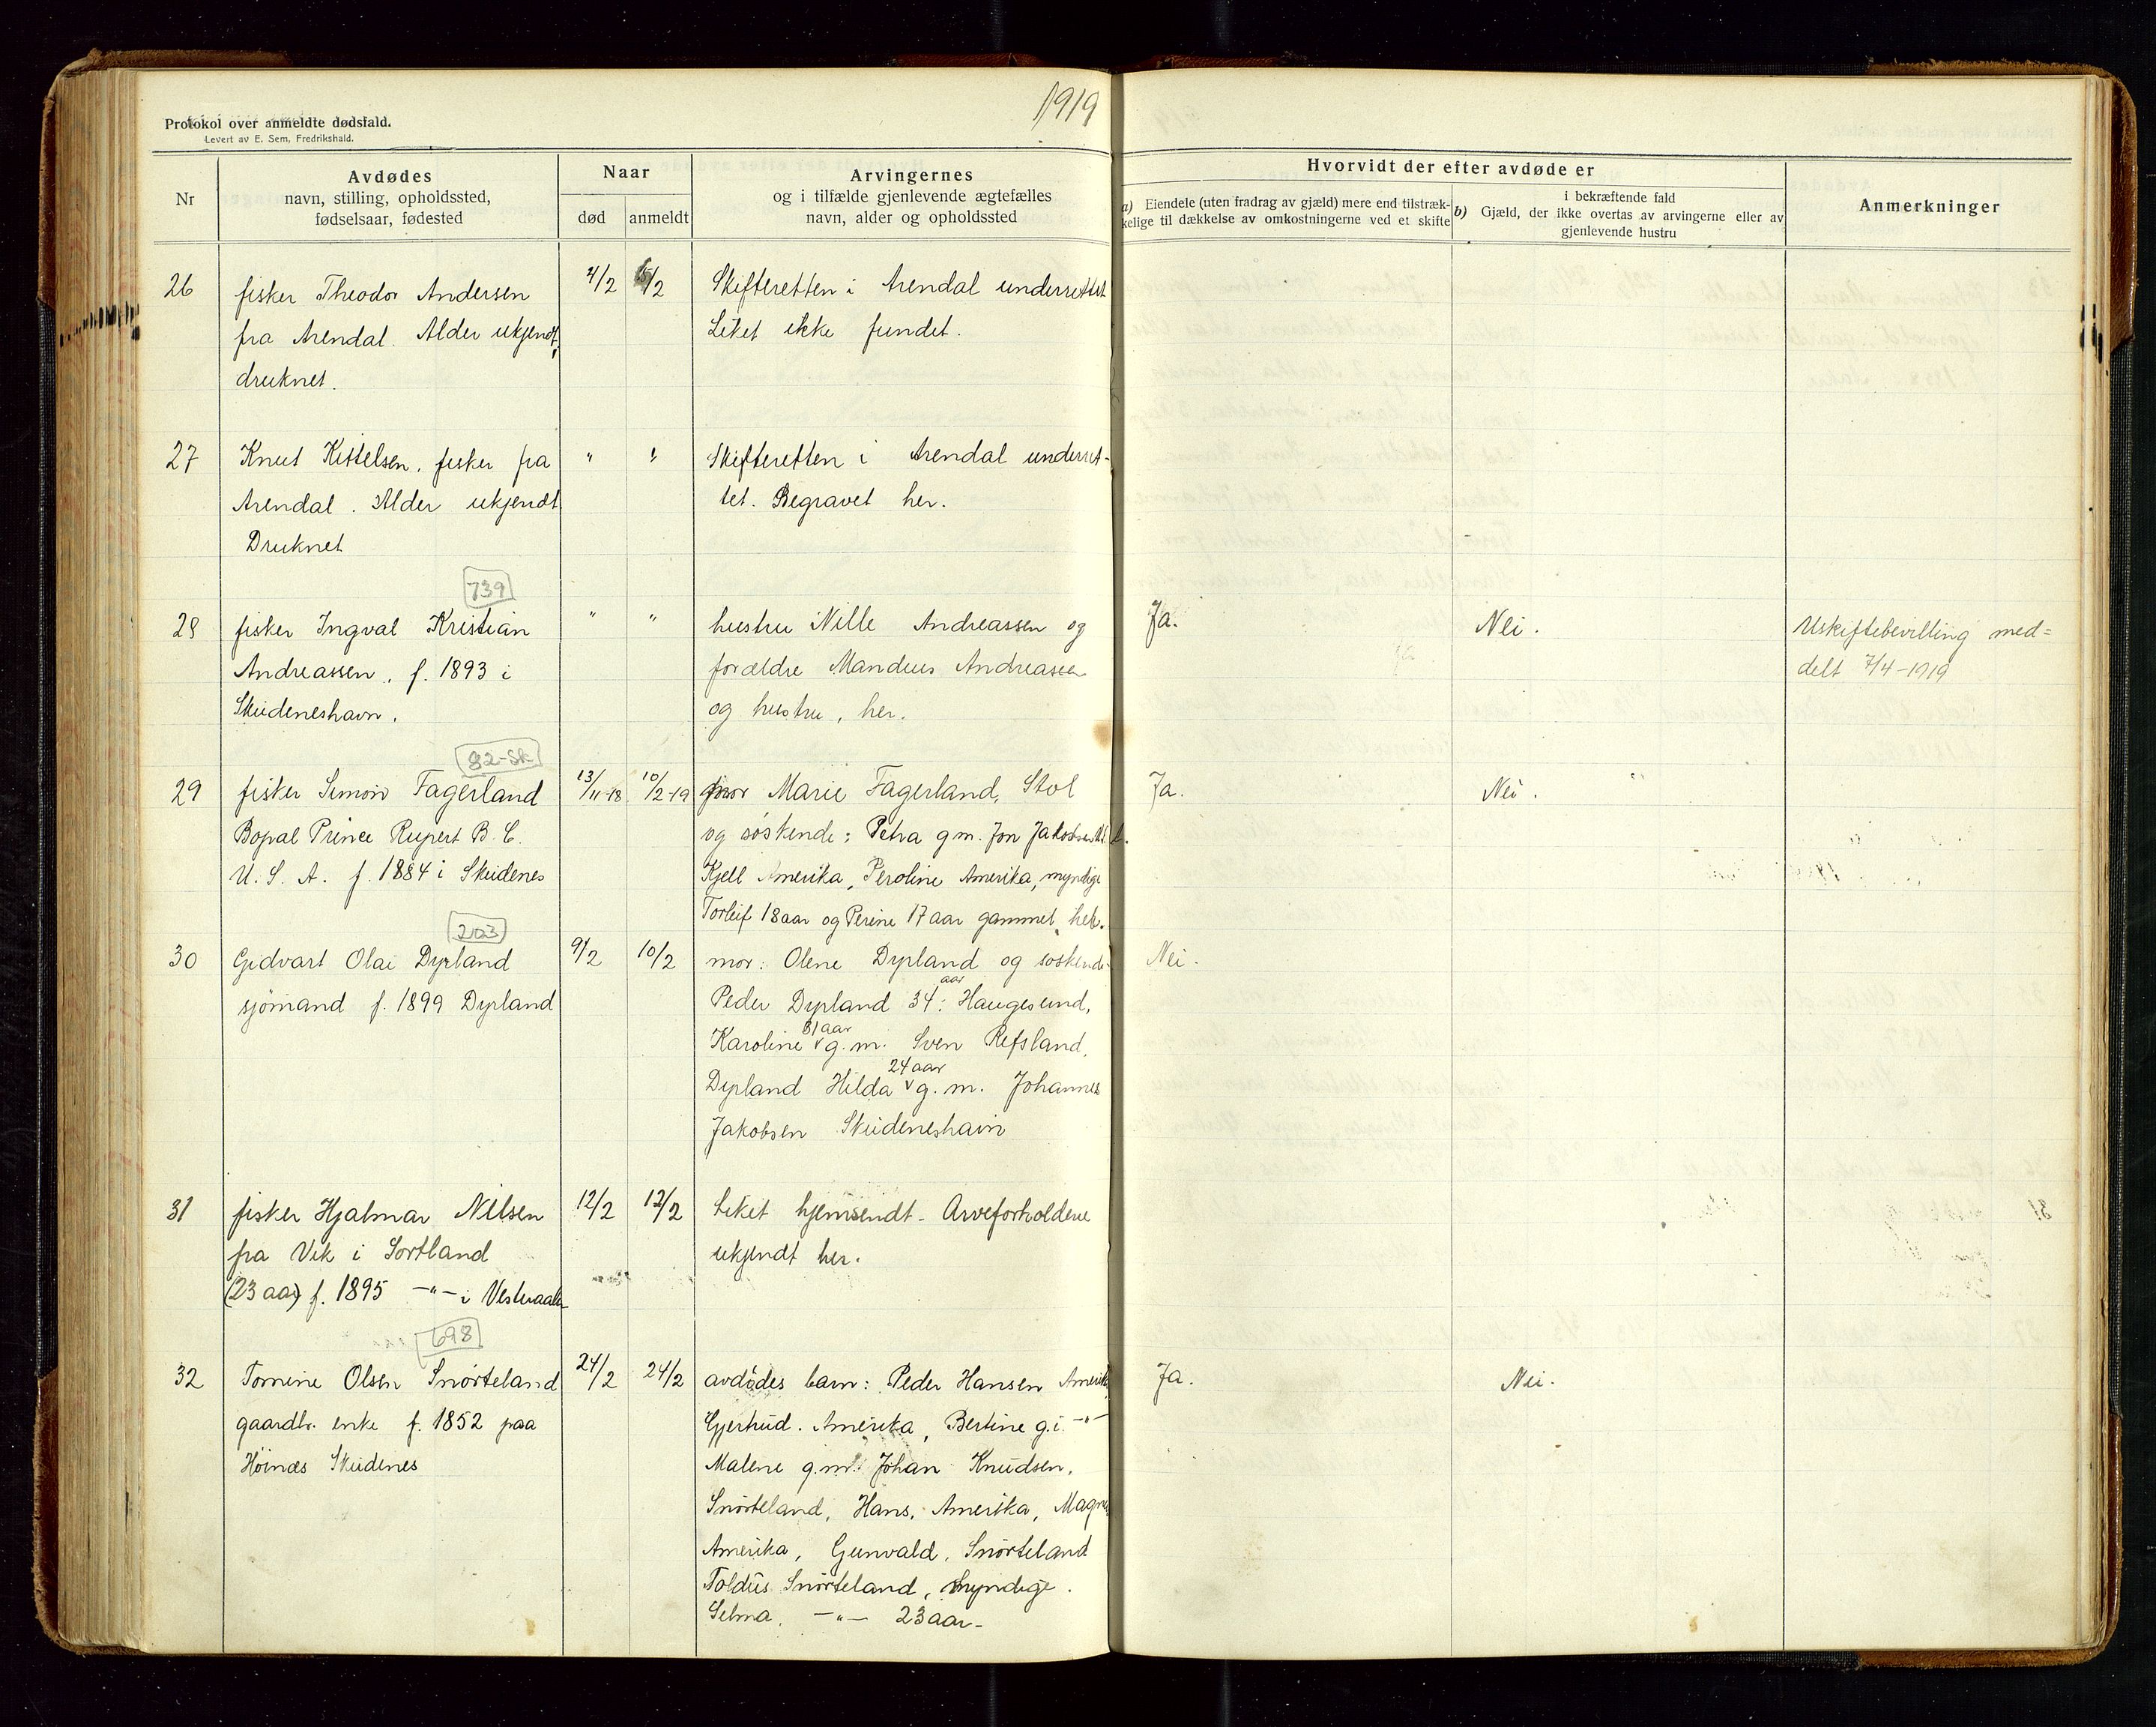 1919
Protokol over anmeldte dødsfald.
Levert av E. Sem, Fredrikshald.
Nr
Avdødes
navn, stilling, opholdssted,
fødselsaar, fødested
Naar
død
anmeldt
Arvingernes
og i tilfælde gjenlevende ægtefælles
navn, alder og opholdssted
Hvorvidt der efter avdøde er
a) Eiendele (uten fradrag av gjæld) mere end tilstræk-
kelige til dækkelse av omkostningerne ved et skifte
i bekræftende fald
b) Gjæld, der ikke overtas av arvingerne eller av
gjenlevende hustru
Anmerkninger
26
fisker Theodor Andersen
fra Arendal. Alder ukjendt,
druknet.
4/2
5/2
Skifteretten i Arendal underrettet
Liket ikke fundet.
27
Knut Kittelsen, fisker fra
Arendal. Alder ukjendt
Druknet
" "
Skifteretten i Arendal underret-
tet. Begravet her.
739
28
fisker Ingval Kristian
Andreassen, f. 1893 i
Skudeneshavn.
" "
hustru Nille Andreassen og
forældre Mandius Andreasen
og hustru, her.
Ja.
Nei.
Uskiftebevilling med=
delt 7/4-1919
82-Sk
29
fisker Simon Fagerland
Bopal Prince Rupert B. C.
U. S. A. f. 1884 i Skudenes
13/11-18
10/2-19
mor Marie Fagerland, Stol
og søskende: Petra g.m. Jon Jakobsen
Kjell Amerika, Peroline Amerika, myndige
Torleif 18 aar og Perine 17 aar gammel, her.
Ja.
Nei.
203
30
Gidvart Olai Dyrland
sjømand f. 1899 Dyrland
9/2
10/2
mor: Olene Dyrland og søskende
Peder Dyrland 34 aar: Haugesund,
Karoline 31 aar g.m. Sven Refsland,
Dyrland Hilda 24 aar g.m. Johannes
Jakobsen Skudeneshavn
Nei.
31
fisker Hjalmar Nilsen
fra Vik i Sortland
(23 aar) f. 1895 -"- i Vesteraalen
12/2
12/2
Liket hjemsendt. Arveforholdene
ukjendt her.
698
32
Tomine Olsen Snørteland
gaardbr. enke f. 1852 paa
Høinæs Skudenes
24/2
24/2
avdødes barn: Peder Hansen Amerika
Gjertrud. Amerika, Bertine g.i. -"-
Malene g.m. Johan Knudsen,
Snørteland, Hans, Amerika, Magne
Amerika, Gunvald, Snørteland
Toldus Snørteland, myndige.
Selma, -"- 23 aar-
Ja.
Nei.